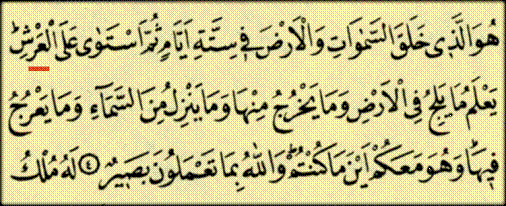 هُوَ الَّذٖى خَلَقَ السَّمٰوَاتِ وَالْاَرْضَ فٖى سِتَّةِ اَيَّامٍ ثُمَّ اسْتَوٰى عَلَى الْعَرْشِؕ
يَعْلَمُ مَا يَلِجُ فِى الْاَرْضِ وَمَا يَخْرُجُ مِنْهَا وَمَا يَنْزِلُ مِنَ السَّمَٓاءِ وَمَا يَعْرُجُ
فٖيهَاؕ وَهُوَ مَعَكُمْ اَيْنَ مَا كُنْتُمْؕ وَاللّٰهُ بِمَا تَعْمَلُونَ بَصٖيرٌ ﴿٤﴾ لَهُ مُلْكُ